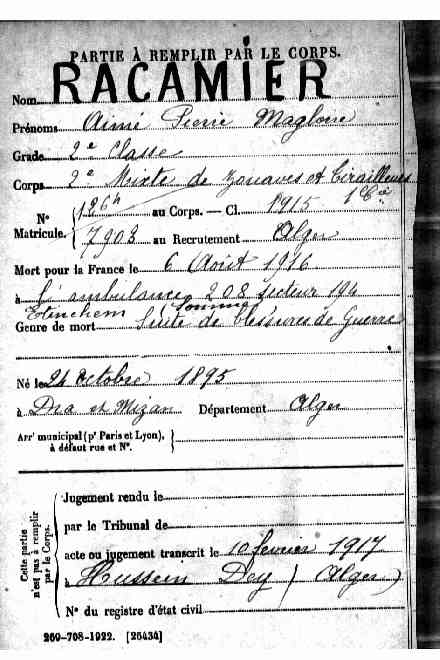 PARTIE À REMPLIR PAR LE CORPS.
Nom RACAMIER
Prénoms Aimé Pierre Magloire
Grade 2e Classe
Corps 2e Mixte de Zouaves et Tirailleurs
1e Cie
N° Matricule. { 1864 au Corps. — Cl. 1915
7903 au Recrutement Alger
Mort pour la France le 6 Août 1916
à l'ambulance 208 Secteur 194
Etinehem (Somme)
Genre de mort Suite de blessures de Guerre
Né le 24 octobre 1895
à Dra el Mizan Département Alger
Arrt municipal (pr Paris et Lyon), à défaut rue et N°. }
Cette partie n'est pas à remplir par le Corps. {
Jugement rendu le
par le Tribunal de
acte ou jugement transcrit le 10 fevrier 1917
à Hussein Dey (Alger)
N° du registre d'état civil
260-708-1922. [26434]